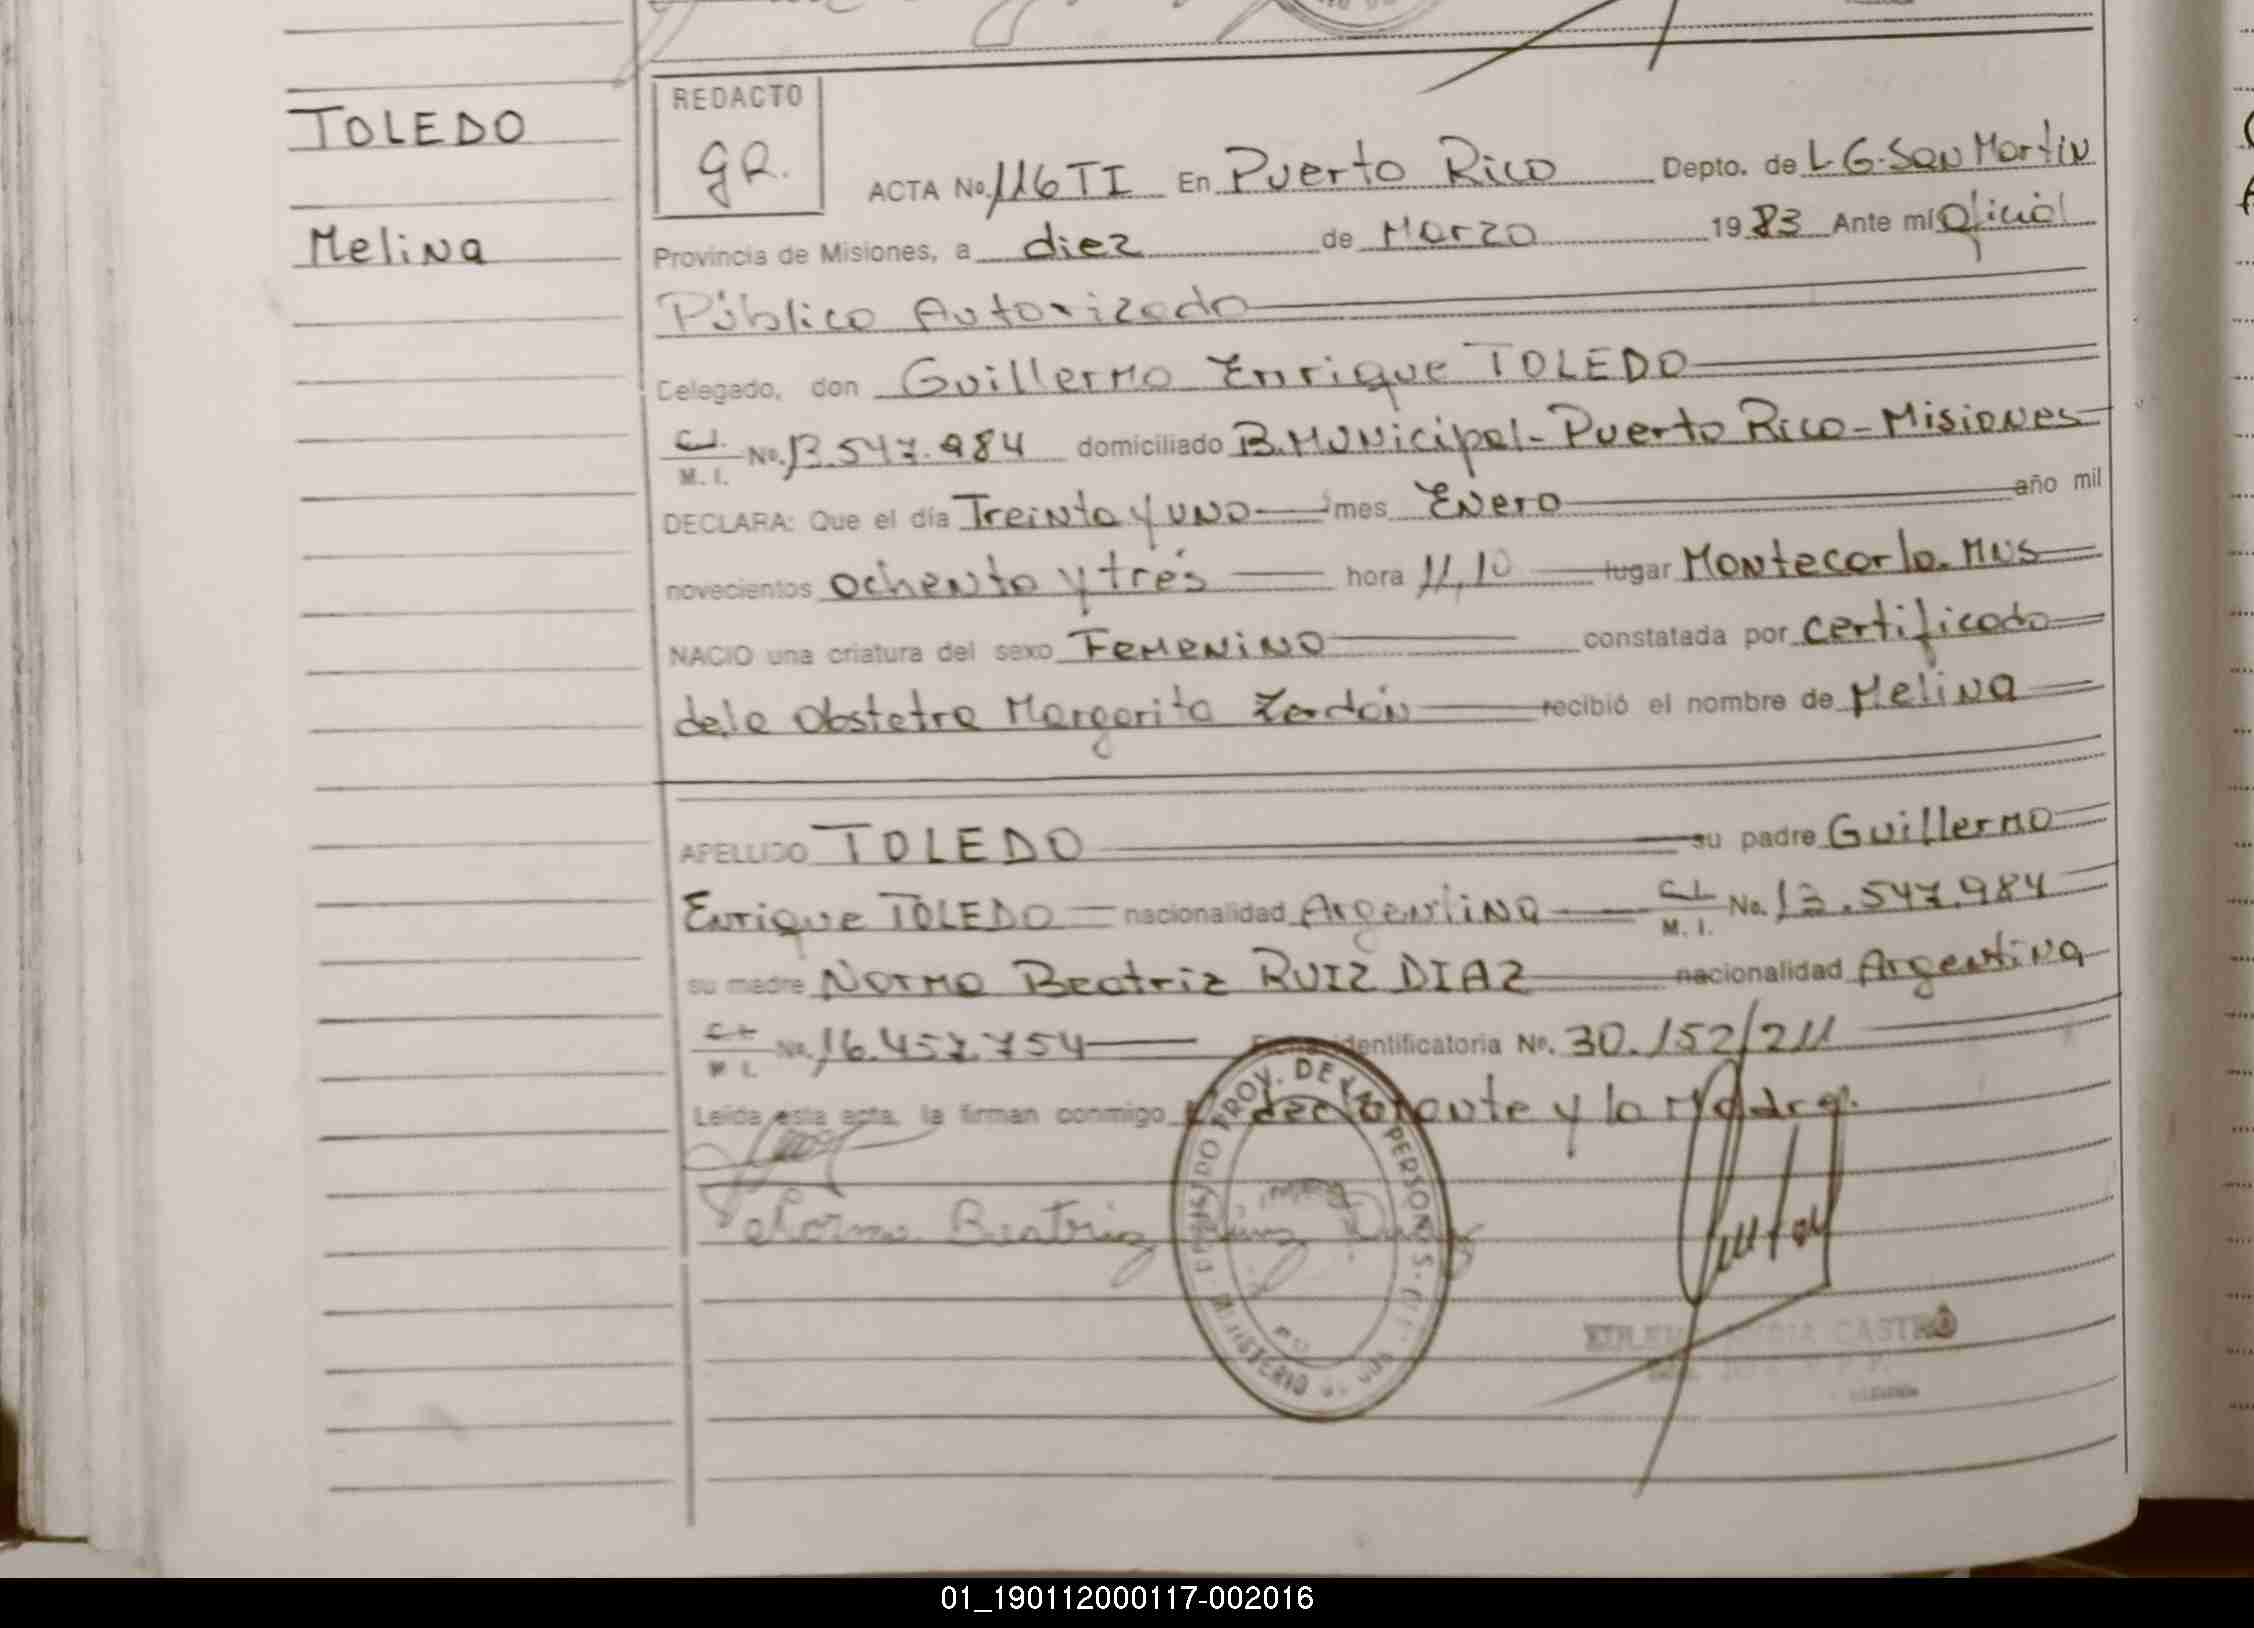 TOLEDO
Melina
REDACTO
gR.
ACTA No. 116 TI En Puerto Rico Depto. de L.G. San Martin
Provincia de Misiones, a diez de Marzo 1983 Ante mi Oficial
Público Autorizado
Celegado, don Guillermo Enrique TOLEDO
C.I. M. I. No. 13.547.984 domiciliado B. Municipal - Puerto Rico - Misiones
DECLARA: Que el día Treinta y uno mes Enero año mil
novecientos ochenta y trés hora 11,10 lugar Montecarlo. Mns
NACIO una criatura del sexo Femenino constatada por certificado
de la Obstetra Margarita recibió el nombre de Melina
APELLIDO TOLEDO su padre Guillermo
Enrique TOLEDO nacionalidad Argentina C.I. M. I. No. 13.547.984
su madre Norma Beatriz RUIZ DIAZ nacionalidad Argentina
C.I. M. I. No. 16.457.754 Ficha identificatoria No. 30.152/211
Leída esta acta, la firman conmigo declarante y la Madre.
Norma Beatriz Ruiz Diaz
PROV. DE LAS PERSONAS
MINISTERIO
CASTRO
01_190112000117-002016